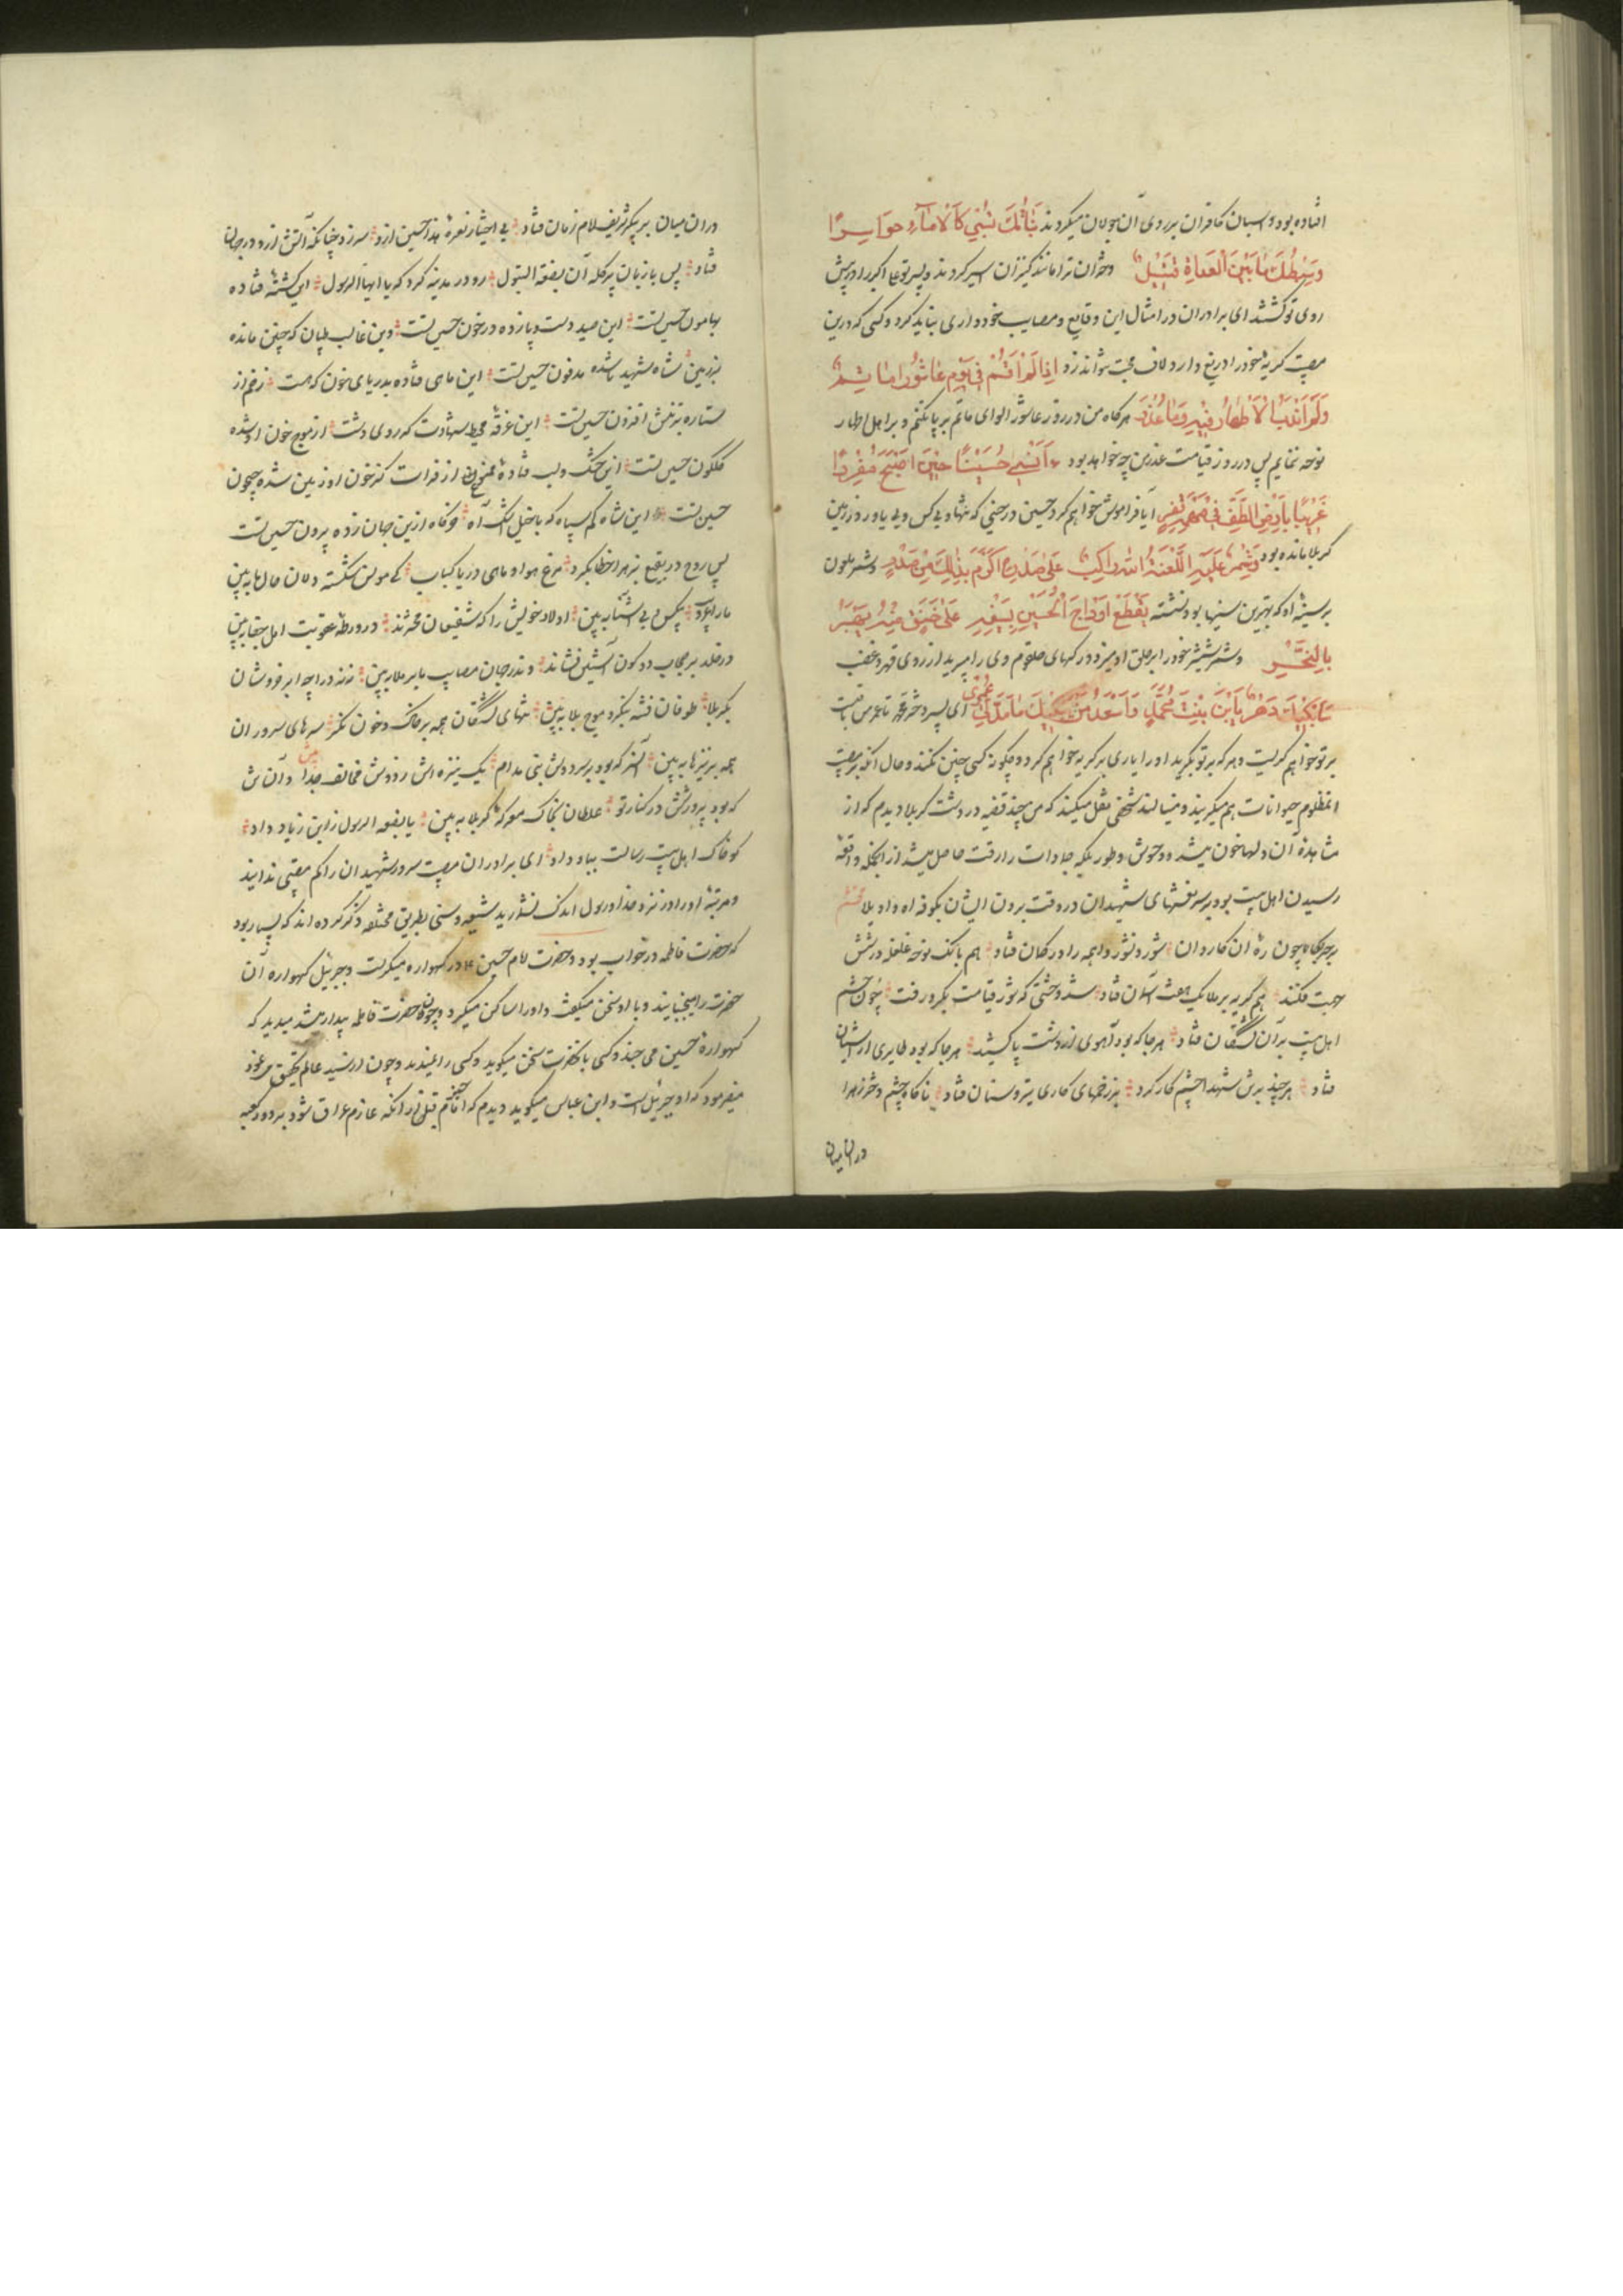 افتاده بود و اسبان کافران بر روی آن جولان میکردند بَنَاتُكَ تُسْبٰی كَالْاِمَآءِ حَوَاسِرًا
وَسِبْطُكَ مَا بَیْنَ الْعَدَاةِ قَتِیْلٌ دختران ترا مانند کنیزان اسیر کردند و پسر تو علی اکبر را در پیش
روی تو کشتند ای برادران در امثال این وقایع و مصایب خودداری نباید کرد و کسی که درین
مصیبت گریه خود را دریغ دارد لاف محبت نتواند زد اِذَا لَمْ اُقِمْ فِی یَوْمِ عَاشُورَا مَاتِمًا
وَلَمْ اَنْدُبِ الْاَطْهَارَ فِیْهِ فَمَا عُذْرٌ هرگاه من در روز عاشورا لوای ماتم بر پا نکنم و بر اهل اطهار
نوحه ننمایم پس در روز قیامت عذر من چه خواهد بود ءَاَنْسٰی حُسَیْنًا حِیْنَ اَصْبَحَ مُفْرَدًا
غَرِیْبًا بِاَرْضِ الطَّفِّ فِی مَهْمَهٍ قَفْرٍ آیا فراموش خواهم کرد حسین در حینی که تنها و بی کس و بی یاور در زمین
کربلا مانده بود وَشِمْرٌ عَلَیْهِ اللَّعْنَةُ اللّٰهِ رَاكِبٌ عَلٰی صَدْرِهِ اَكْرِمْ بِذٰلِكَ مِنْ صَدْرٍ و شمر ملعون
بر سینه او که بهترین سینها بود نشسته یَقْطَعُ اَوْدَاجَ الْحُسَیْنِ بِسَیْفِهِ عَلٰی حَنَقٍ مِنْهُ یُهَبِّرُ
بِالنَّحْرِ و شمر شمشیر خود را بر حلق او میزد و رگهای حلقوم وی را میبرید از روی قهر و غضب
سَاَبْكِیْكَ دَهْرًا یَا ابْنَ بِنْتِ مُحَمَّدٍ وَاَسْعَدُ مَنْ یَبْكِیْكَ مَا مَدَّ لِی عُمْرِی ای پسر دختر محمد تا عمر من باقیست
بر تو خواهم گریست و هر که بر تو بگرید او را یاری بر گریه خواهم کرد و چگونه کسی چنین نکند و حال آنکه بر مصیبت
انمظلوم حیوانات هم میگریند و مینالند شخصی نقل میکند که من چند قضیه در دشت کربلا دیدم که از
مشاهدهٔ آن دلها خون میشد و وحوش و طیور بلکه جمادات را رقت حاصل میشد از انجمله واقعهٔ
رسیدن اهل بیت بود بر سر نعشهای شهیدان در وقت بردن ایشان بکوفه آه واویلا محتشم
بر حربگاه چون ره آن کاروان فتاد شور و نشور واهمه را در گمان فتاد هم بانگ نوحه غلغله در شش
جهت فکند هم گریه بر ملایک هفت آسمان فتاد شد وحشتی که شور قیامت بگرد رفت چون چشم
اهل بیت بر آن کشتگان فتاد هرجا که بود آهوی از دشت پا کشید هرجا که بود طایری از آشیان
فتاد هر چند بر تن شهدا چشم کار کرد بر زخمهای کاری تیر و سنان فتاد ناگاه چشم دختر زهرا
در ان میان
در ان میان بر پیکر شریف امام زمان فتاد بی اختیار نعرهٔ هذا حسین ازو سر زد چنانکه آتش ازو در جهان
فتاد پس با زبان پر گله آن بضعة البتول رو در مدینه کرد که یا ایها الرسول این کشتهٔ فتاده
بهامون حسین تست این صید دست و پا زده در خون حسین تست وین غالب طپان که چنین مانده
بر زمین شاه شهید ناشده مدفون حسین تست این ماهی فتاده بدریای خون که هست زخم از
ستاره بر تنش افزون حسین تست این غرقهٔ محیط شهادت که روی دشت از موج خون او شده
گلگون حسین تست این خشک لب فتادهٔ ممنوع از فرات کز خون او زمین شده جیحون
حسین تست این شاه کم سپاه که با خیل اشک و آه خرگاه ازین جهان زده بیرون حسین تست
پس روی در بقیع بزهرا خطاب کرد مرغ هوا و ماهی دریا کباب کرد کای مونس شکسته دلان حال ما ببین
ما را غریب و بیکس و بی آشنا ببین اولاد خویش را که شفیعان محشرند در ورطهٔ عقوبت اهل جفا ببین
در خلد بر حجاب دو کون آستین فشان و اندر جهان مصایب ما بر ملا ببین نی نی درا چو ابر خروشان
بکربلا طوفان فتنه بنگر و موج بلا ببین تنهای کشتگان همه بر خاک و خون نگر سرهای سروران
همه بر نیزها ببین آن سر که بود بر سر دوش نبی مدام یک نیزه اش ز دوش مخالف جدا ببین و آن تن
که بود پرورشش در کنار تو غلطان بخاک معرکهٔ کربلا ببین یا بضعة الرسول ز ابن زیاد داد
کو خاک اهل بیت رسالت بباد داد ای برادران مصیبت سرور شهیدان را کم مصیبتی ندانید
و مرتبهٔ او را در نزد خدا و رسول اندک نشمارید شیعه و سنی بطریق مختلفه ذکر کرده اند که بسیار بود
که حضرت فاطمه در خواب بود و حضرت امام حسین ع در گهواره میگریست و جبرئیل گهواره آن
حضرت را میجنبانید و با او سخن میگفت و او را ساکن میکرد و چون حضرت فاطمه بیدار میشد میدید که
گهوارهٔ حسین می جنبد و کسی با آنحضرت سخن میگوید و کسی را نمیدید و چون از سید عالم تحقیق می نمود
میفرمود که او جبرئیل است و ابن عباس میگوید دیدم که امام قبل از آنکه عازم عراق شود بر در کعبه